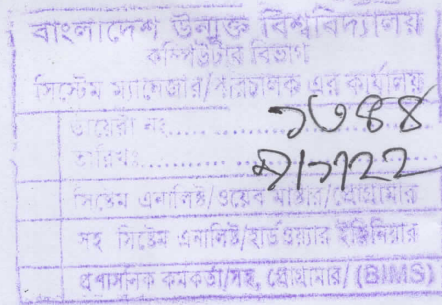 বাংলাদেশ উন্মুক্ত বিশ্ববিদ্যালয়
কম্পিউটার বিভাগ
সিস্টেম ম্যানেজার/পরিচালক এর কার্যালয়
ডায়েরী নং............ ১৩৪৪
তারিখঃ............
সিস্টেম এনালিষ্ট/ওয়েব মাষ্টার/প্রোগ্রামার
সহ সিষ্টেম এনালিষ্ট/হার্ডওয়্যার ইঞ্জিনিয়ার
প্রশাসনিক কর্মকর্তা/সহ, প্রোগ্রামার/ (BIMS)